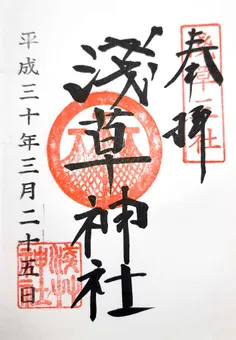 奉拝
淺草神社
平成三十年三月二十五日
淺草神社